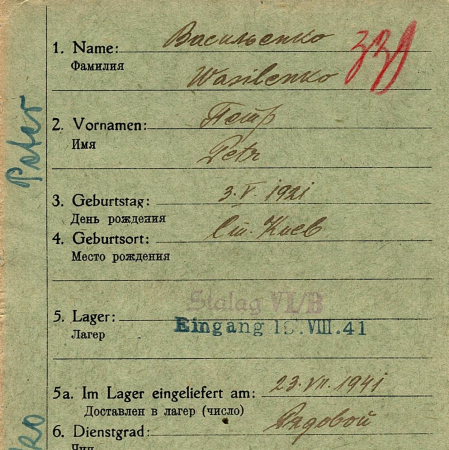 1. Name: Васильенко
Фамилия
Wasilenko
2. Vornamen: Петр
Имя
Petr
3. Geburtstag: 3.V.1921
День рождения
4. Geburtsort: Ст. Киев
Место рождения
Stalag VI/B
5. Lager:
Eingang VIII.41
Лагерь
5a. Im Lager eingeliefert am: 23.VII.1941
Доставлен в лагерь (число)
6. Dienstgrad: Рядовой
Чин
Peter
ko